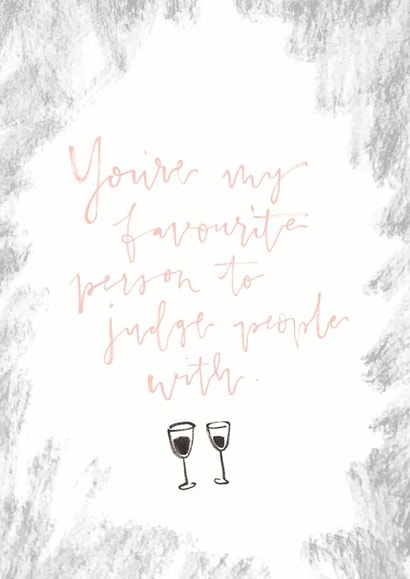 You're my
favourite
person to
judge people
with.